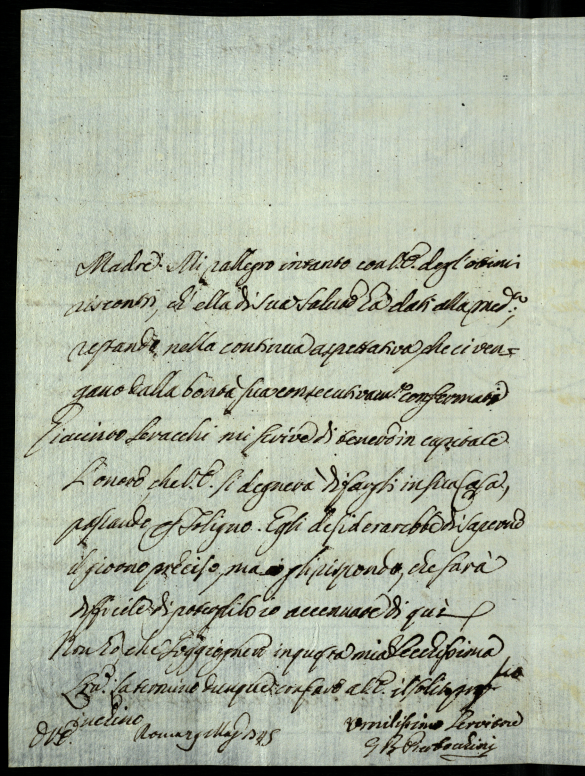 Madre. Mi rallegro intanto con V.E. degl'ottimi
riscontri, ch'ella di sua salute ha dati alla med.ma,
restando nella continua aspettativa, che ci ven=
gano dalla bontà sua consecutivam.te confermati
Giacinto mi scrive di tenere in capitale
L'onore, che V.E. si degnerà di fargli in sua Casa,
passando p Foligno. Egli desiderarebbe di sapere
il giorno preciso, ma io gli rispondo, che sarà
difficile di poterglilo accennare di quà
Non hò che soggiognere in questa mia
la termino dunque con fare a V.E. il solito
inchino
D V.E. Roma 1745
umilissimo Servitore
G B